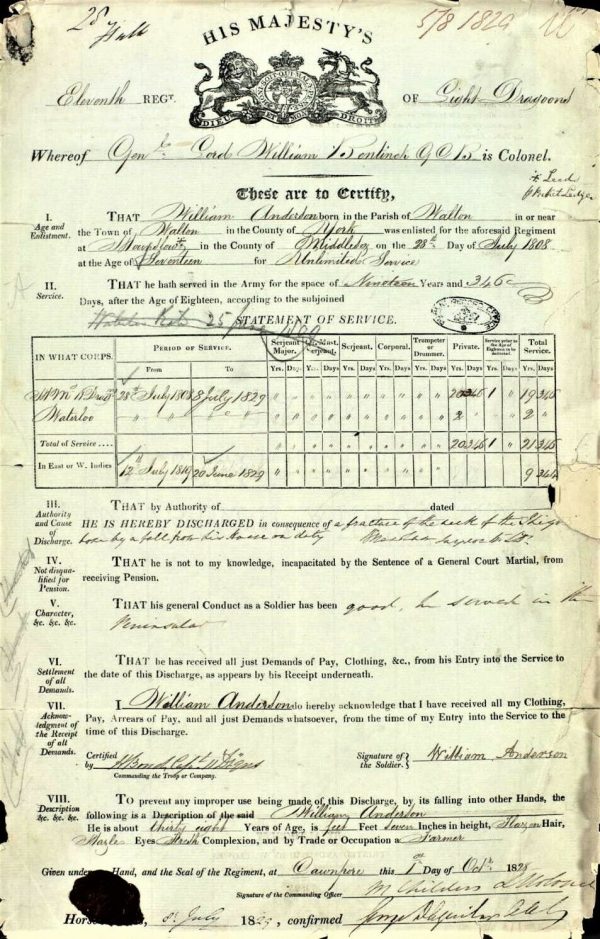 28
5/8 1829
HIS MAJESTY'S
DIEU ET MON DROIT
Eleventh REGT. OF Light Dragoons
Whereof Genl. Lord William Bentinck G C B is Colonel.
These are to Certify,
I.
Age and
Enlistment.
THAT William Anderson born in the Parish of Walton in or near
the Town of Walton in the County of York was enlisted for the aforesaid Regiment
at in the County of Middlesex on the 28th Day of July 1808
at the Age of Seventeen for Unlimited Service
II.
Service.
THAT he hath served in the Army for the space of Nineteen Years and 346
Days, after the Age of Eighteen, according to the subjoined
25 STATEMENT OF SERVICE.
IN WHAT CORPS. PERIOD OF SERVICE. Serjeant Major. Serjeant. Serjeant. Corporal. Trumpeter or Drummer. Private. Service prior to the Age of Eighteen to be deducted. Total Service.
From To Yrs. Days Yrs. Days Yrs. Days Yrs. Days Yrs. Days Yrs. Days Yrs. Days Yrs. Days
28th July 1808 8 July 1829 " " " " " " " " " " 20 346 1 " 19 346
Waterloo " " " " " " " " " " 2 " " " 2 "
Total of Service .... " " " " " " " " " " 20 346 1 " 21 346
In East or W. Indies 12th July 1819 20 June 1829 9
III.
Authority
and Cause
of
Discharge.
THAT by Authority of dated
HE IS HEREBY DISCHARGED in consequence of a fracture of the neck of the Thigh
bone by a fall from his Horse on duty
IV.
Not disqua-
lified for
Pension.
THAT he is not to my knowledge, incapacitated by the Sentence of a General Court Martial, from
receiving Pension.
V.
Character,
&c. &c. &c.
THAT his general Conduct as a Soldier has been good, he served in the
Peninsula
VI.
Settlement
of all
Demands.
THAT he has received all just Demands of Pay, Clothing, &c., from his Entry into the Service to
the date of this Discharge, as appears by his Receipt underneath.
VII.
Acknow-
ledgment of
the Receipt
of all
Demands.
I William Anderson do hereby acknowledge that I have received all my Clothing,
Pay, Arrears of Pay, and all just Demands whatsoever, from the time of my Entry into the Service to the
time of this Discharge.
Certified by Bond Capt. Signature of the Soldier. William Anderson
Commanding the Troop or Company.
VIII.
Description
&c. &c. &c.
TO prevent any improper use being made of this Discharge, by its falling into other Hands, the
following is a Description of the said William Anderson
He is about thirty eight Years of Age, is feet Feet Seven Inches in height, Flaxen Hair,
Hazle Eyes Fresh Complexion, and by Trade or Occupation a Farmer
Given under Hand, and the Seal of the Regiment, at Cawnpore this 1st Day of Octr. 1828
M Childers Lt Colonel
Signature of the Commanding Officer
Horse July 1829, confirmed